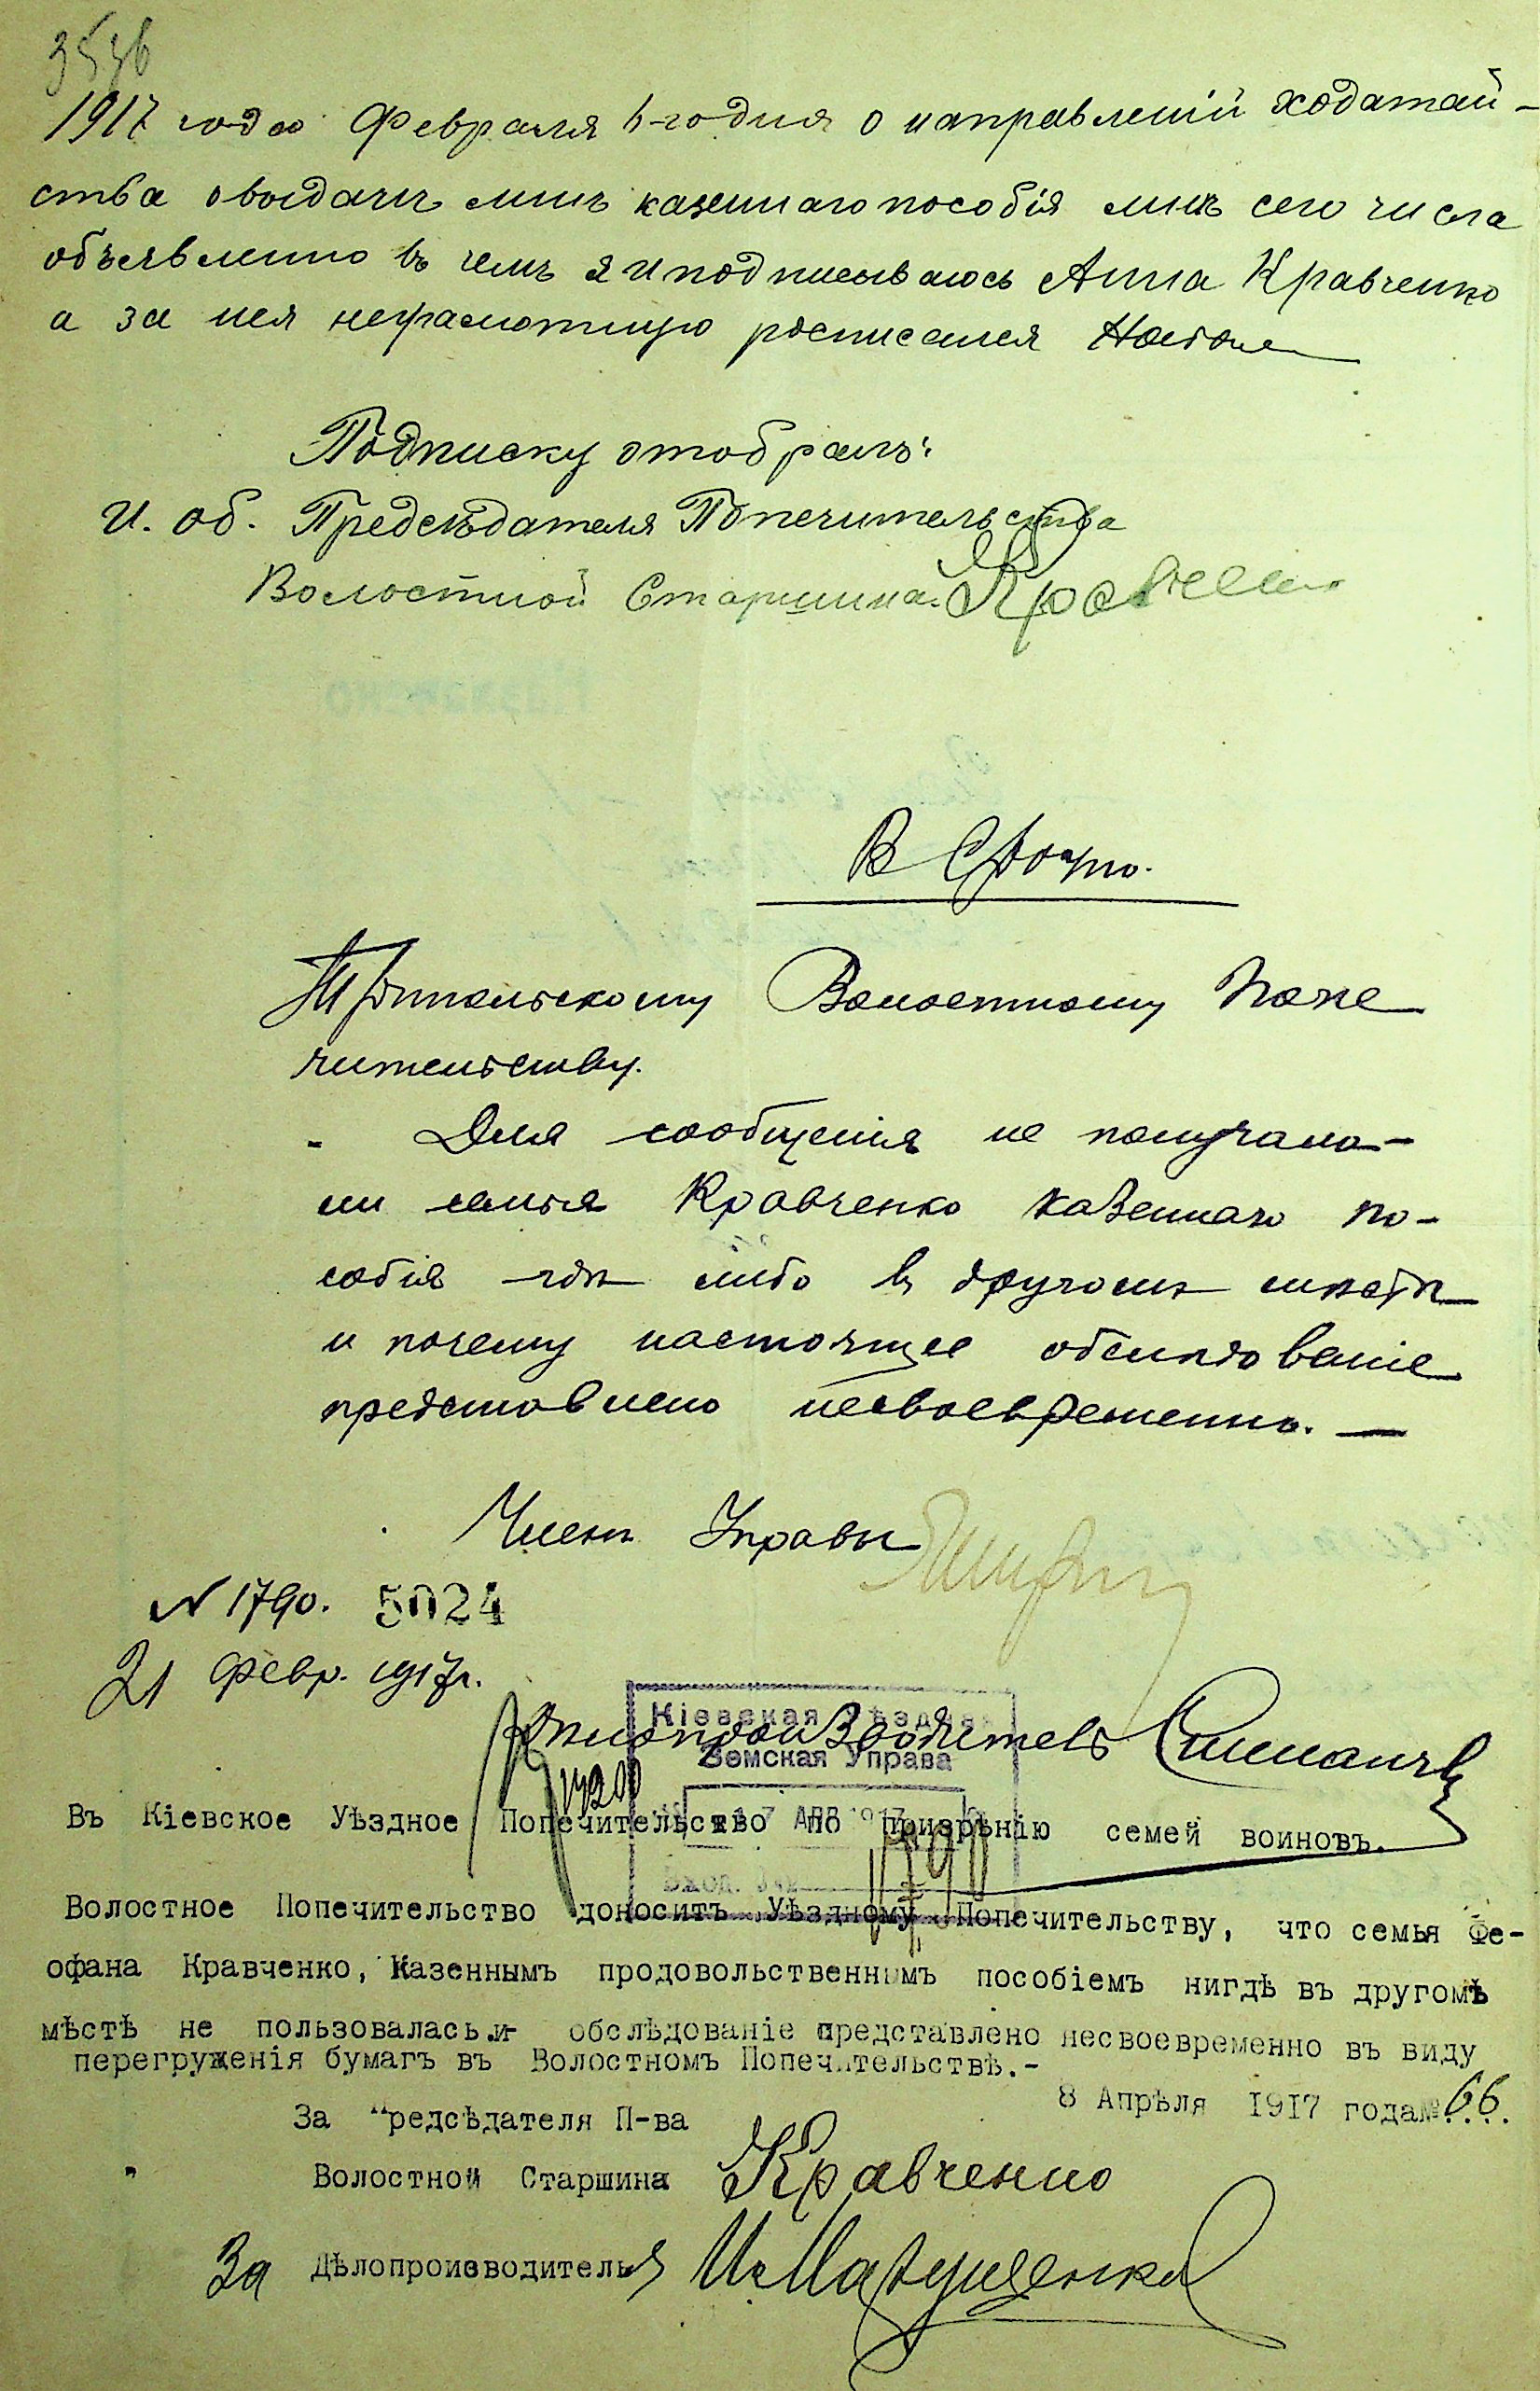 1917 года Февраля 6-го дня о направленій ходатай-
ства о выдачи мнѣ казеннаго пособія мнѣ сего числа
объявленно въ чемъ я и подписываюсь Анна Кравченко
а за нея неграмотную росписался
Подписку отобралъ:
И. об. Предсѣдателя Попечительства
Волостной Старшина Кравченко
В Срочно.
Трипольскому Волостному Попе
чительству.
Для сообщенія не получала-
ли семья Кравченко казеннаго по-
собія гдѣ либо въ другомъ мѣстѣ
и почему настоящее обслѣдованіе
представлено несвоевременно. —
Членъ Управы
N 1790. 5024
21 Февр. 1917 г.
Дѣлопроизводитель
Кіевская Уѣздная
Земская Управа
7 АПР 1917
Вход. №
1790
Въ Кіевское Уѣздное Попечительство по призрѣнію семей воиновъ.
Волостное Попечительство доноситъ Уѣздному Попечительству, что семья Фе-
офана Кравченко, Казеннымъ продовольственнымъ пособіемъ нигдѣ въ другомъ
мѣстѣ не пользовалась и обслѣдованіе представлено несвоевременно въ виду
перегруженія бумагъ въ Волостномъ Попечительствѣ.-
8 Апрѣля 1917 года № 66.
За Предсѣдателя П-ва
Волостной Старшина Кравченко
За Дѣлопроизводителя И. Матущенко